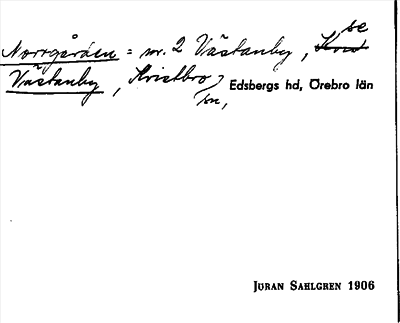 Norrgården = nr. 2 Västanby, se
Västanby, Kvistbro
sn, Edsbergs hd, Örebro län
JÖRAN SAHLGREN 1906